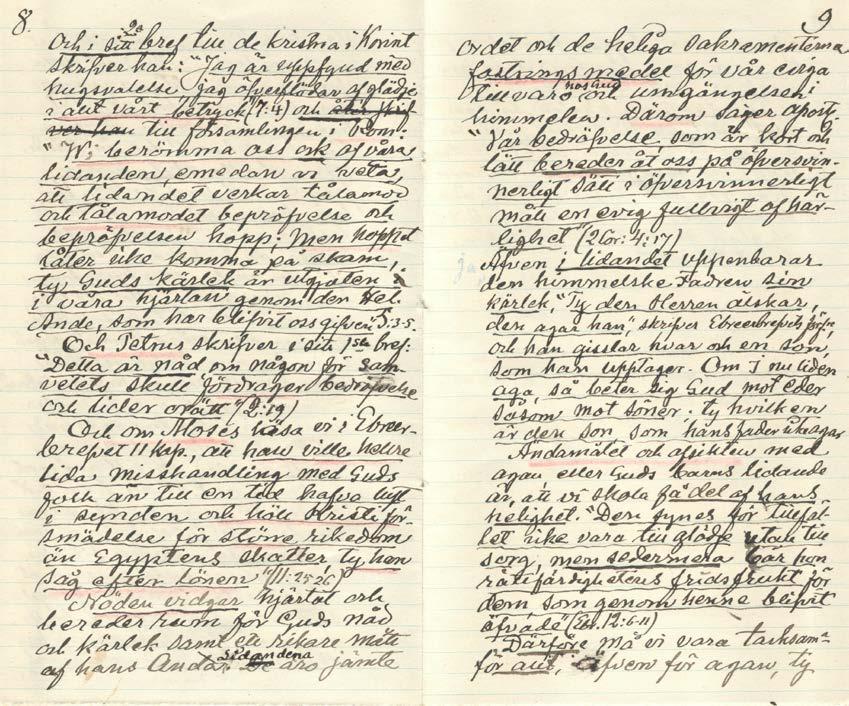 8.
och i sitt 2a bref till de kristna i Korint
skrifver han: "Jag är uppfyld med
hugsvalelse jag öfverflödar af glädje
i allt vårt betryck" (7:4) och åter skrif
ver han till församlingen i Rom:
"Vi berömma oss ock af våra
lidanden, emedan vi veta,
att lidandet verkar tålamod
och tålamodet bepröfvelse och
bepröfvelsen hopp; Men hoppet
låter icke komma på skam,
ty Guds kärlek är utgjuten
i våra hjärtan genom den Hel.
Ande, som har blifvit oss gifven" 5:3-5.
Och Petrus skrifver i sitt 1sta bref:
"Detta är nåd om någon för sam-
vetets skull fördrager bedröfvelse
och lider orätt" (2:19)
Och om Moses läsa vi i Ebreer-
brefvet 11 kap., att han ville hellre
lida misshandling med Guds
folk än till en tid hafva lust
i synden och höll Kristi för-
smädelse för större rikedom
än Egyptens skatter, ty han
såg efter lönen" (11:25-26)
Nöden vidgar hjärtat och
bereder rum för Guds nåd
och kärlek samt ett rikare mått
af hans Anda. Lidandena äro jämte
9
ordet och de heliga Sakramenterna
fostringsmedel för vår eviga
tillvaro hos Gud och umgängelsen i
himmelen. Därom säger apost:
"Vår bedröfvelse, som är kort och
lätt bereder åt oss på öfversvin-
nerligt sätt i öfversvinnerligt
mått en evig fullvigt af här-
lighet" (2 Cor: 4:17)
Äfven i lidandet uppenbarar
den himmelske Fadren sin
kärlek, "Ty den Herren älskar,
den agar han," skrifver Ebreerbrefvets förf.,
och han gisslar hvar och en son,
som han upptager. Om I nu liden
aga, så beter sig Gud mot eder
såsom mot söner. ty hvilken
är den son, som hans fader icke agar
Ändamålet och afsikten med
agan, eller Guds barns lidande
är, att vi skola få del af hans
helighet. "Den synes för tillfäl-
let icke vara till glädje utan till
sorg, men sedermera bär hon
rättfärdighetens fridsfrukt för
dem som genom henne blifvit
öfvade" (Ebr. 12:6-11)
Därföre må vi vara tacksam=
för allt, äfven för agan, ty